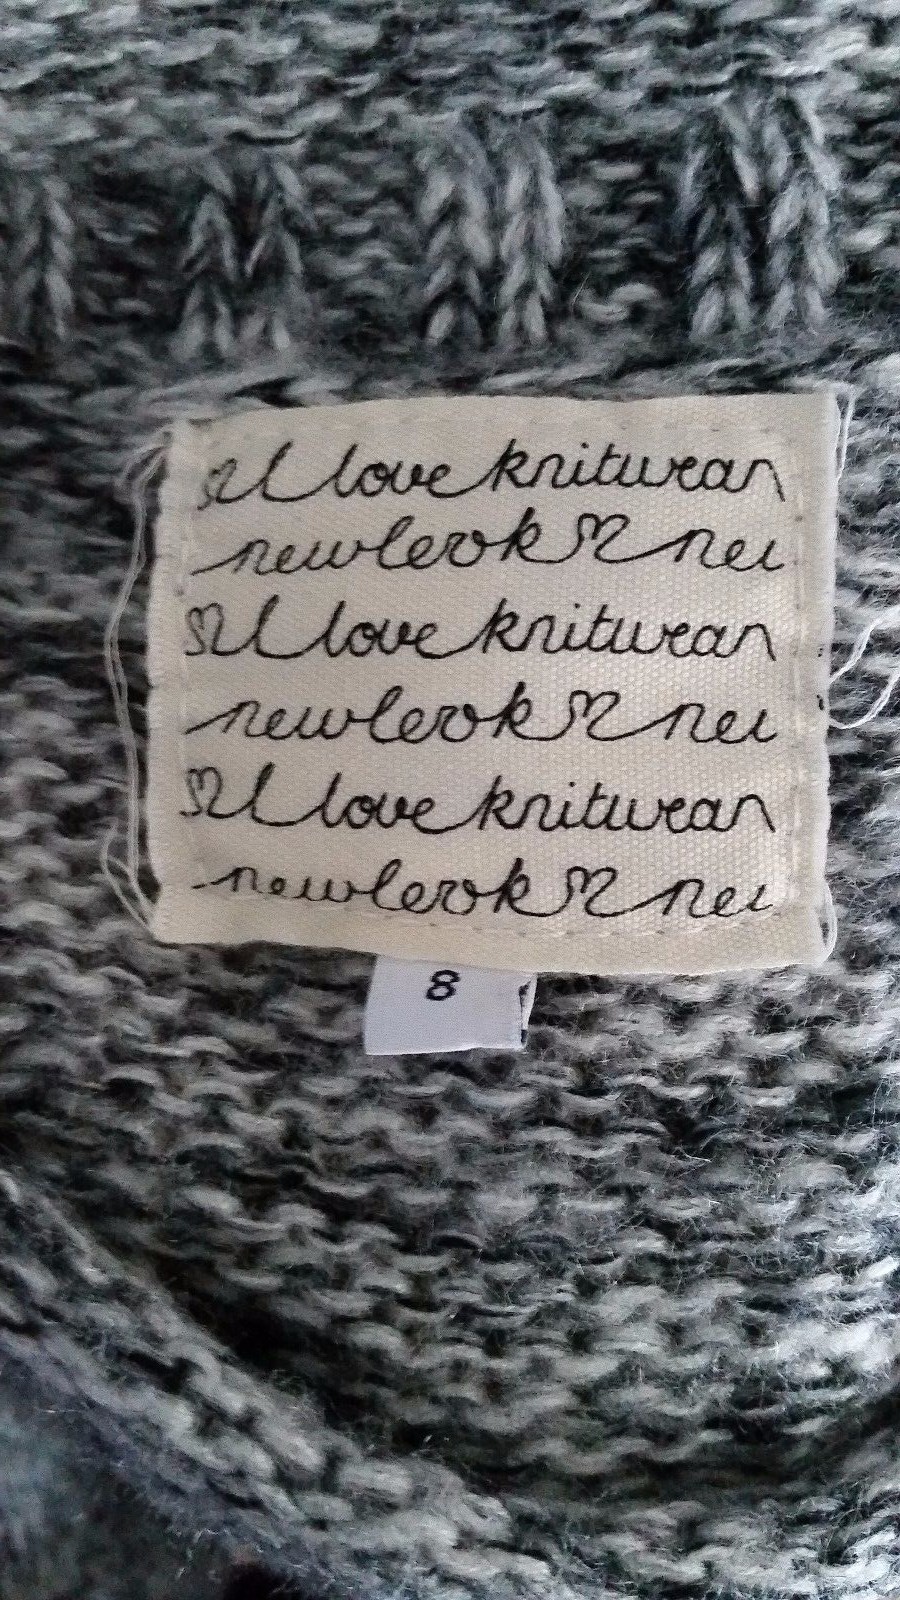 ♡ I love knitwear
newlook ♡ nei
♡ I love knitwear
newlook ♡ nei
♡ I love knitwear
newlook ♡ nei
8